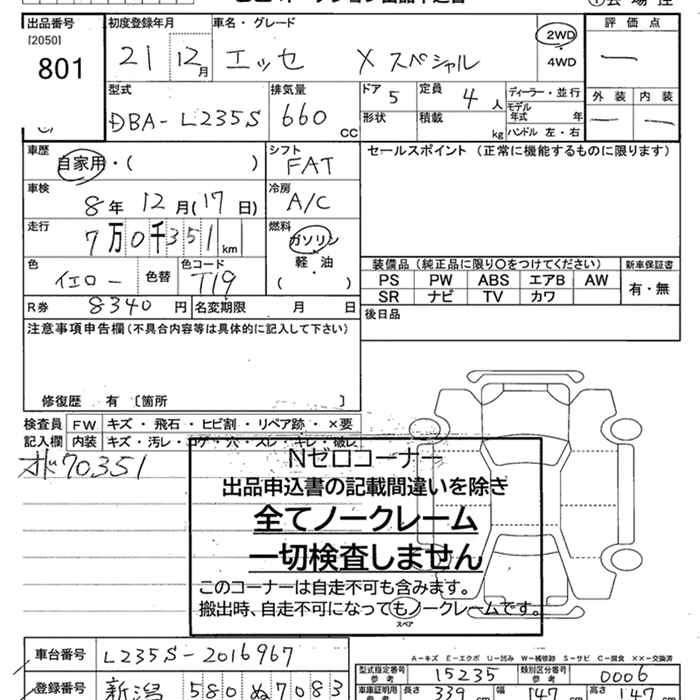 出品番号 [2050] 801
初度登録年月 21 12月
車名・グレード エッセ Xスペシャル
2WD 4WD
評価点 ー
外装 ー 内装 ー
型式 DBA-L235S
排気量 660 CC
ドア 5 定員 4人
形状 積載 kg
ディーラー・並行
モデル年式 年
ハンドル 左・右
車歴 自家用・( )
シフト FAT
セールスポイント (正常に機能するものに限ります)
車検 8年12月(17日)
冷房 A/C
走行 7万0千351km
燃料 ガソリン 軽・油 ( )
色 イエロー 色替 色コード T19
装備品 (純正品に限り○をつけてください) 新車保証書
PS PW ABS エアB AW 有・無
SR ナビ TV カワ
R券 8340円 名変期限 月 日
後日品
注意事項申告欄(不具合内容等は具体的に記入して下さい)
修復歴 有 〔箇所 〕
検査員記入欄 FW キズ・飛石・ヒビ割・リペア跡・×要
内装 キズ・汚レ・コゲ・穴・スレ・キレ・破レ
70351
Nゼロコーナー
出品申込書の記載間違いを除き
全てノークレーム
一切検査しません
このコーナーは自走不可も含みます。
搬出時、自走不可になってもノークレームです。
スペア
A-キズ E-エクボ U-凹み W-補修跡 S-サビ C-腐食 ××-交換済
車台番号 L235S-2016967
型式指定番号 参考 15235 類別区分番号 参考 0006
登録番号 新潟 580 ぬ7083
車庫証明用 参考 長さ 339 cm 幅 147 cm 高さ 147